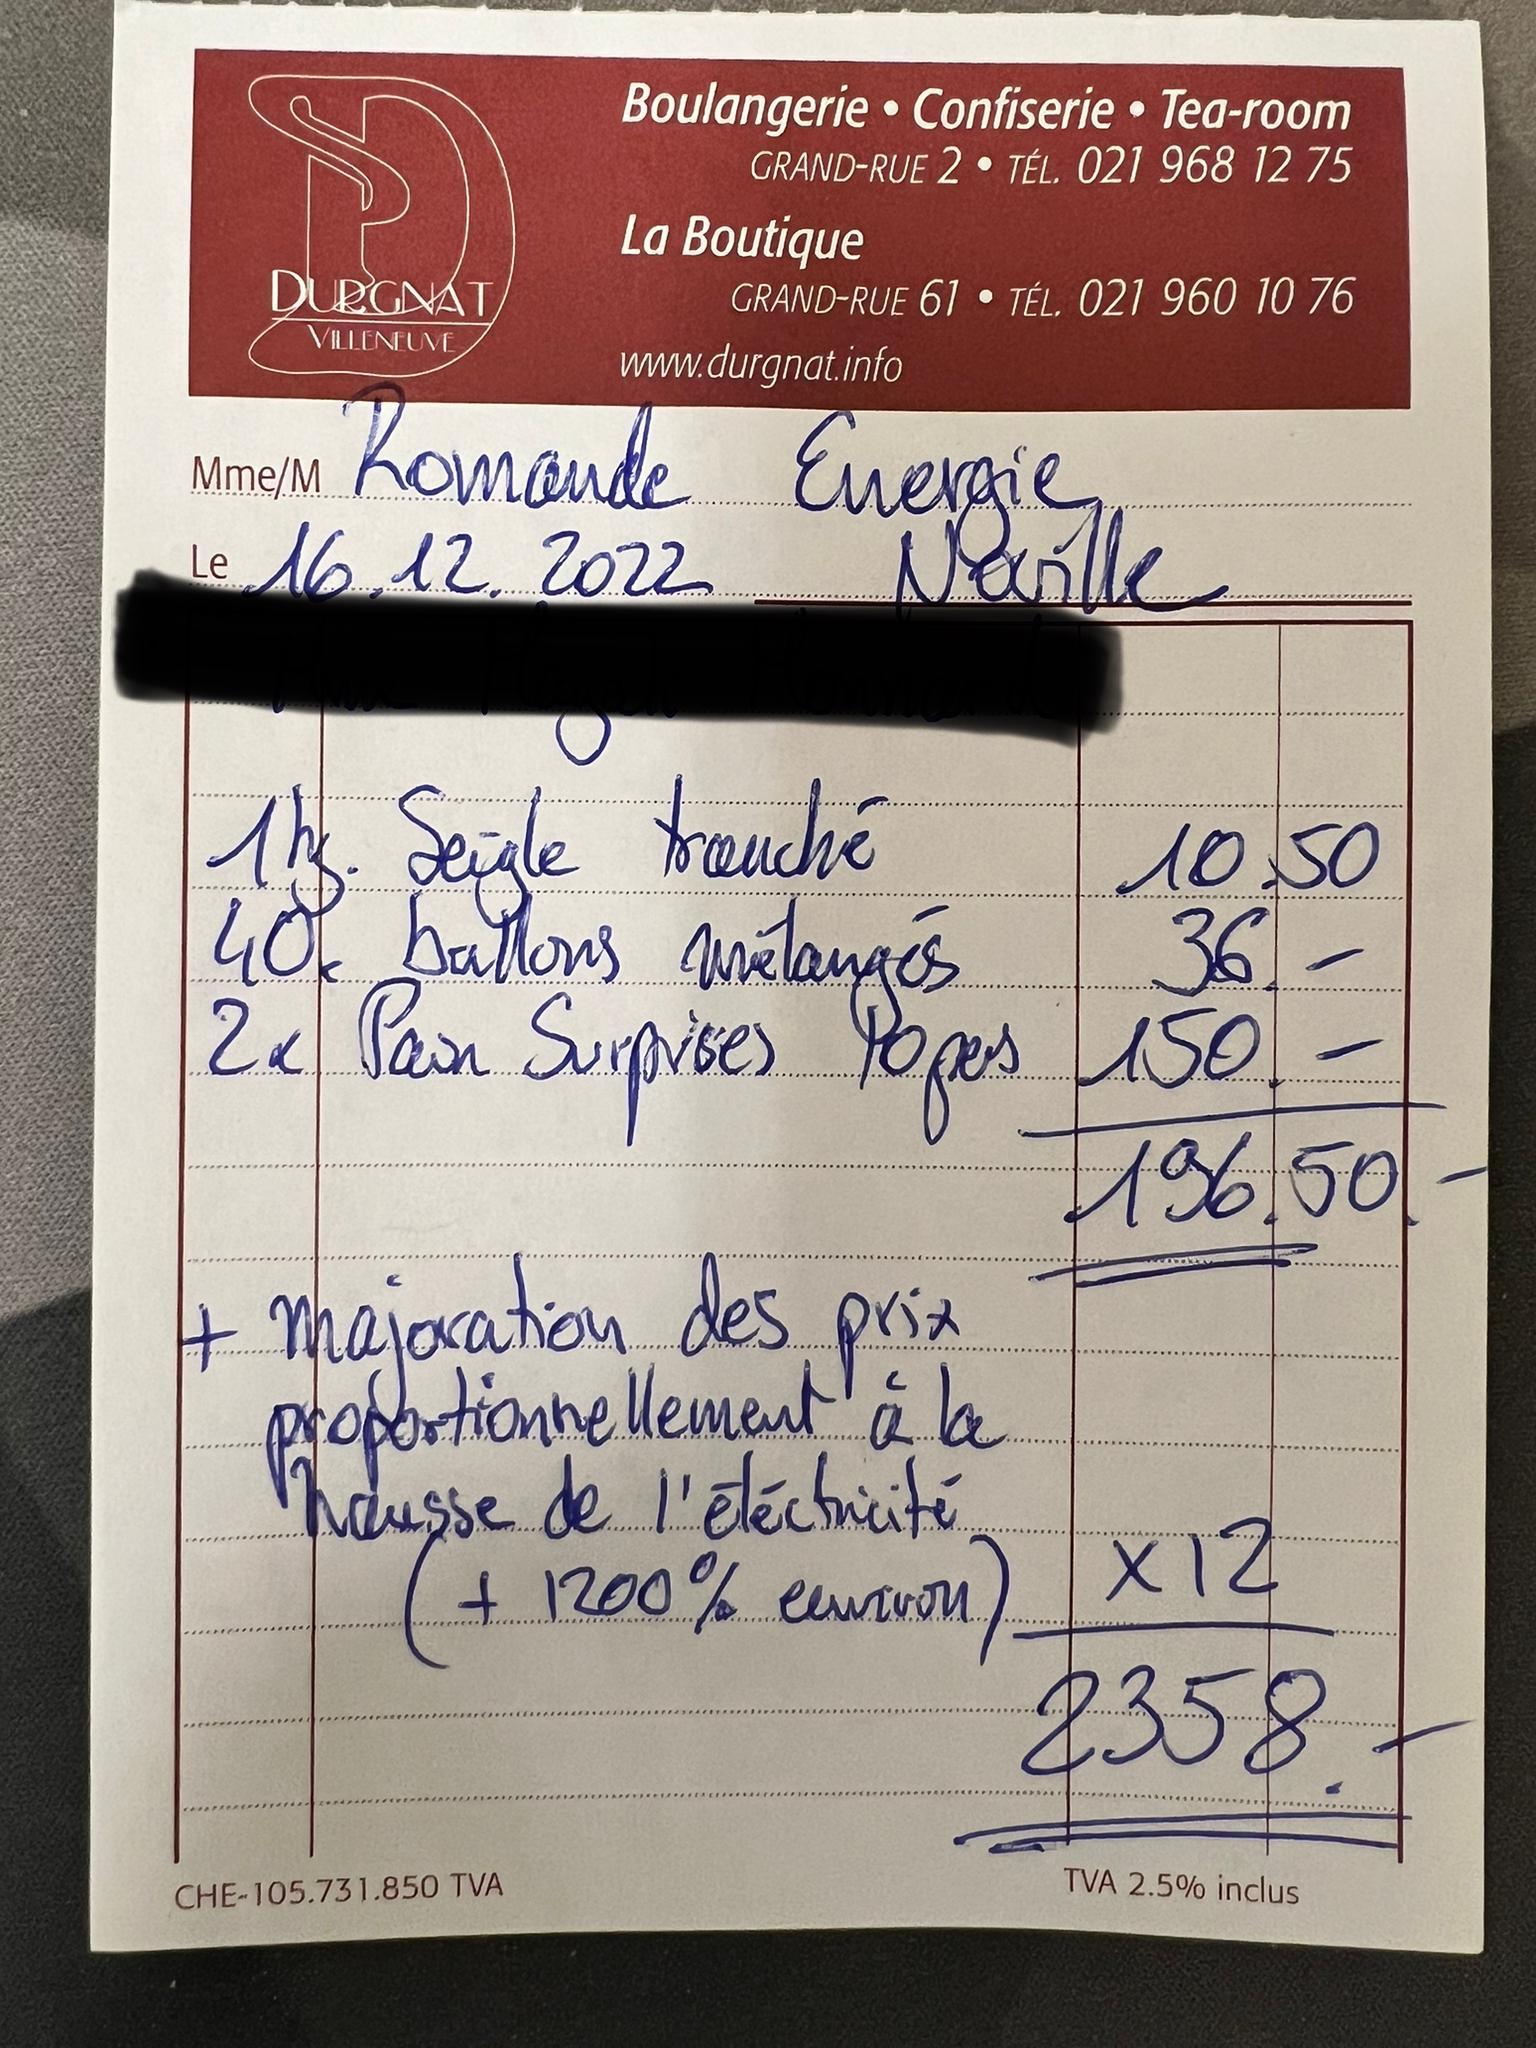 Boulangerie • Confiserie • Tea-room
GRAND-RUE 2 • TÉL. 021 968 12 75
La Boutique
GRAND-RUE 61 • TÉL. 021 960 10 76
www.durgnat.info
DURGNAT
VILLENEUVE
Mme/M Romande Energie
Le 16.12.2022 Noville
1kg. Seigle tranché 10.50
40x ballons mélangés 36.-
2x Pain Surprises 40pers 150.-
196.50.-
+ majoration des prix
proportionnellement à la
hausse de l'éléctricité
(+ 1200% environ) x12
2358.-
CHE-105.731.850 TVA
TVA 2.5% inclus